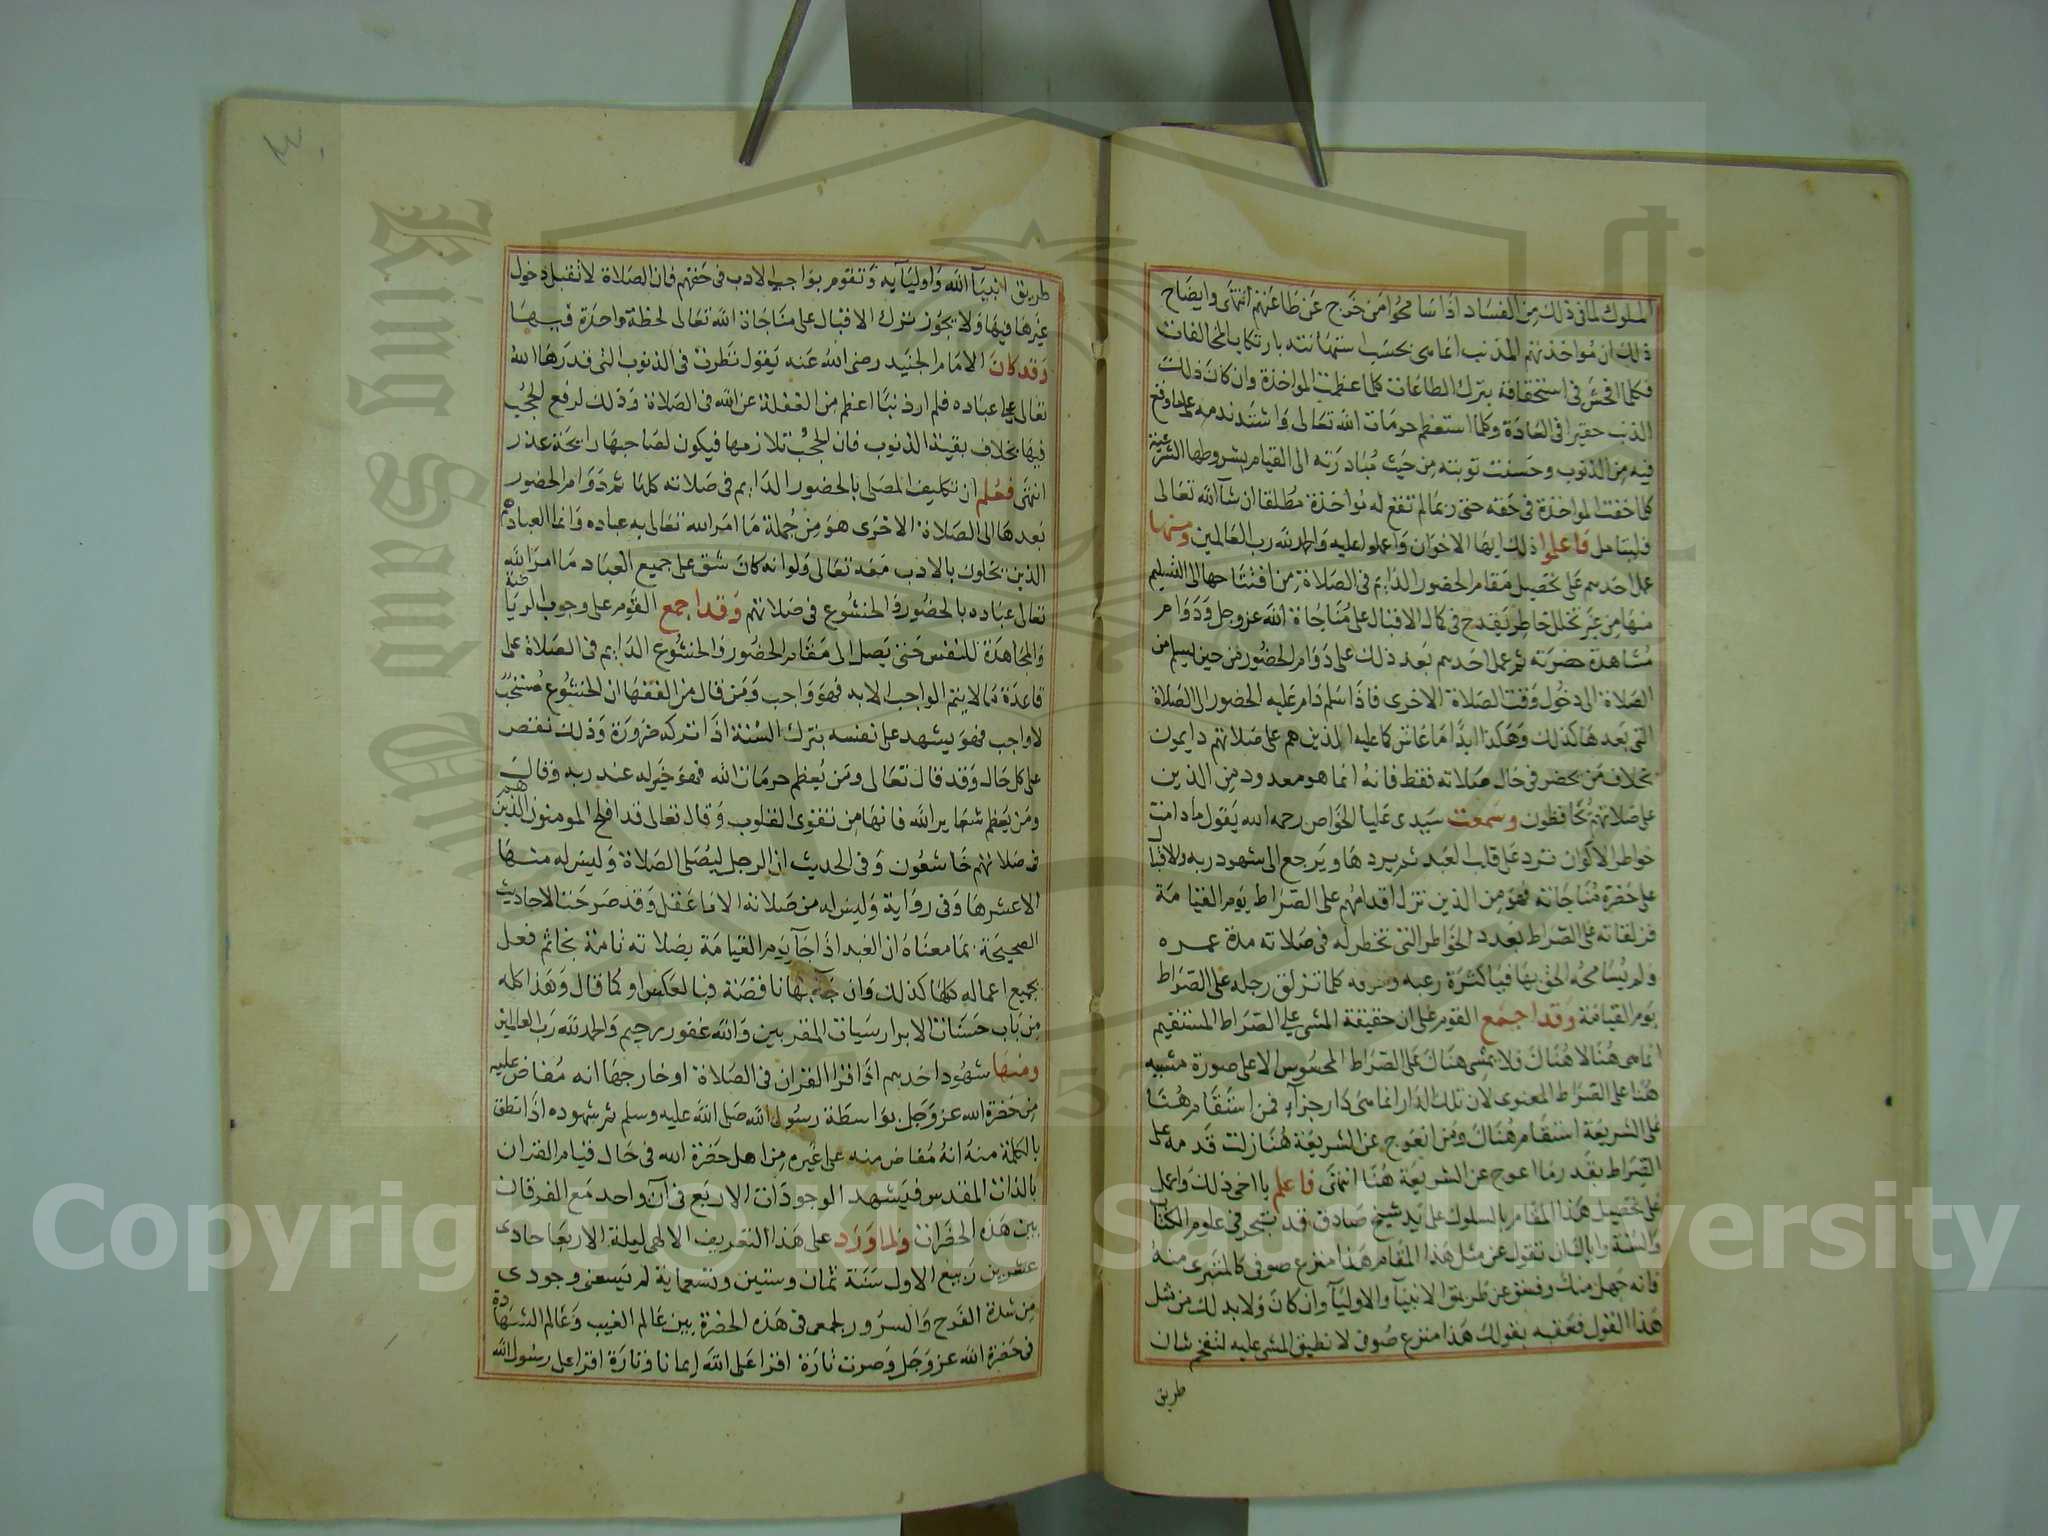 الملوك لما فى ذلك من الفساد اذا سامحوا من خرج عن طاعتهم انتهى وايضاح
ذلك ان مواخذتهم المذنب انما هى بحسب استهانته بارتكاب المخالفات
فكلما افحش فى استخفافه بترك الطاعات كلما عظمت المواخذة وان كان ذلك
الذنب حقيرا فى العادة وكلما استعظم حرمات الله تعالى واشتد ندمه على ما وقع
فيه من الذنوب وحسنت توبته من حيث مبادرته الى القيام بشروطها الشرعية
كلما خفت المواخذة فى حقه حتى ربما لم تقع له مواخذة مطلقا ان شآ الله تعالى
فليتامل فاعلموا ذلك ايها الاخوان واعملوا عليه والحمد لله رب العالمين ومنها
عمل احدهم على تحصيل مقام الحضور الدايم فى الصلاة من افتتاحها الى التسليم
منها من غير تخلل خاطر يقدح فى كمال الاقبال على مناجاة الله عز وجل ودوام
مشاهدة حضرته ثم عمل احدهم بعد ذلك على دوام الحضور من حين يسلم من
الصلاة الى دخول وقت الصلاة الاخرى فاذا سلم دام عليه الحضور الى الصلاة
التى بعدها كذلك وهكذا ابدا ما عاش كما عليه الذين هم على صلاتهم دايمون
بخلاف من يحضر فى حال صلاته فقط فانه انما هو معدود من الذين
على صلاتهم يحافظون وسمعت سيدى عليا الخواص رحمه الله يقول ما دامت
خواطر الاكوان ترد على قلب العبد ثم يردها ويرجع الى شهود ربه والاقبال
على حضرة مناجاته فهو من الذين تزل اقدامهم على الصراط يوم القيامة
فزلقاته على الصراط بعدد الخواطر التى تخطر له فى صلاته مدة عمره
ولم يسامحه الحق بها فيا كثرة رعبه وخوفه كلما تزلق رجله على الصراط
يوم القيامة وقد اجمع القوم على ان حقيقة المشى على الصراط المستقيم
انما هى هنا لا هناك فلا يمشى هناك على الصراط المحسوس الا على صورة مشيه
هنا على الصراط المعنوى لان تلك الدار انما هى دار جزآء فمن استقام هنا
على الشريعة استقام هناك ومن اعوج عن الشريعة هنا زلت قدمه على
الصراط بقدر ما اعوج عن الشريعة هنا انتهى فاعلم يا اخى ذلك واعمل
على تحصيل هذا المقام بالسلوك على يد شيخ صادق قد تبحر فى علوم الكتاب
والسنة واياك ان تقول عن مثل هذا المقام هذا منزع صوفى كالمتبرى منه
فانه جهل منك وفسق عن طريق الانبيآ والاوليآ وان كان ولا بد لك من مثل
هذا القول فعقبه بقولك هذا منزع صوفى لا نطيق المشى عليه لتفخم شان
طريق
طريق انبيآ الله واوليآيه وتقوم بواجب الادب فى حقهم فان الصلاة لا تقبل دخول
غيرها فيها ولا يجوز ترك الاقبال على مناجاة الله تعالى لحظة واحدة فيها
وقد كان الامام الجنيد رضى الله عنه يقول نظرت فى الذنوب التى قدرها الله
تعالى على عباده فلم ار ذنبا اعظم من الغفلة عن الله فى الصلاة وذلك لرفع الحجب
فيها بخلاف بقية الذنوب فان الحجب تلازمها فيكون لصاحبها رايحة عذر
انتهى فعلم ان تكليف المصلى بالحضور الدايم فى صلاته كلها ثم دوام الحضور
بعدها الى الصلاة الاخرى هو من جملة ما امر الله تعالى به عباده وانما العباد هم
الذين تخلوا بالادب معه تعالى ولو انه كان شق على جميع العباد ما امر الله
تعالى عباده بالحضور والخشوع فى صلاتهم وقد اجمع القوم على وجوب الرياضة
والمجاهدة للنفس حتى يصل الى مقام الحضور والخشوع الدايم فى الصلاة على
قاعدة ما لا يتم الواجب الا به فهو واجب ومن قال من الفقها ان الخشوع مستحب
لا واجب فهو يشهد على نفسه بترك السنة اذا تركه ضرورة وذلك نقص
على كل حال وقد قال تعالى ومن يعظم حرمات الله فهو خير له عند ربه وقال
ومن يعظم شعاير الله فانها من تقوى القلوب وقال تعالى قد افلح المومنون الذين هم
فى صلاتهم خاشعون وفى الحديث ان الرجل ليصلى الصلاة وليس له منها
الا عشرها وفى رواية وليس له من صلاته الا ما عقل وقد صرحت الاحاديث
الصحيحة بما معناه ان العبد اذا جآ يوم القيامة بصلاته تامة بخاتم فعل
بجميع اعماله كلها كذلك وان جآ بها ناقصة فبالعكس او كما قال وهذا كله
من باب حسنات الابرار سيات المقربين والله غفور رحيم والحمد لله رب العالمين
ومنها شهود احدهم اذا قرا القران فى الصلاة او خارجها انه مفاض عليه
من حضرة الله عز وجل بواسطة رسول الله صلى الله عليه وسلم ثم شهوده اذا نطق
بالكلمة منه انه مفاض منه على غيره من اهل حضرة الله فى حال قيام القران
بالذات المقدس فيشهد الوجودات الاربع فى آن واحد مع الفرقان
بين هذه الحضرات ولما ورد على هذا التعريف الالهى ليلة الاربعا حادى
عشرين ربيع الاول سنة ثمان وستين وتسعماية لم يسعنى وجودى
من شدة الفرح والسرور لجمعى فى هذه الحضرة بين عالم الغيب وعالم الشهادة
فى حضرة الله عز وجل وصرت تارة اقرا على الله ايمانا وتارة اقرا على رسول الله